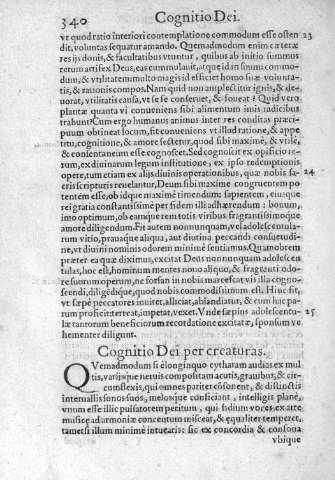 340 Cognitio Dei.
vt quod ratio interiori contemplatione commodum esse osten 23
dit, voluntas sequatur amando. Quemadmodum enim cæteræ
res ijs donis, & facultatibus vtuntur, quibus ab initio summus
rerum artifex Deus, eas cumulauit, atque id in summū commo-
dum, & vtilitatem: multo magis id efficiet homo suæ volunta-
tis, & rationis compos. Nam quid non amplectitur ignis, & de-
uorat, vtilitatis causa, vt se se conseruet, & foueat? Quid vero
plantæ quanta vi conueniens sibi alimentum imis radicibus
trahunt? Cum ergo humanus animus inter res conditas præci-
puum obtineat locum, fit conueniens vt illud ratione, & appe
titu, cognitione, & amore sectetur, quod sibi maximè, & vtile,
& consentaneum esse cognoscet. Sed cognoscit ex opificio re-
rum, ex diuinarum legum institutione, ex ipso redemptionis
opere, tum etiam ex alijs diuinis operationibus, quæ nobis sa- 24
cris scripturis reuelantur, Deum sibi maximè congruentem po
tentem esse, ob idque maximè timendum: sapientem, eiusque
rei gratia constantissimè per fidem illi adhærendum: bonum,
imo optimum, ob eamque rem totis viribus fragrantissimoque
amore diligendum. Fit autem nonnunquam, vel adolescentula-
rum vitio, prauaque aliqua, aut diutina peccandi consuetudi-
ne, vt diuini nominis odorem minimè sentiamus. Quamobrem
præter ea quæ diximus, excitat Deus nonnunquam adolescen
tulas, hoc est, hominum mentes nouo aliquo, & fragranti odo-
re suorum operum, ne forsan in nobis marcescat vis illa cogno-
scendi, diligēdique, quod nobis commodissimum est. Hinc fit,
vt sæpè peccatores inuitet, alliciat, ablandiatur, & cum hac pa-
rum proficit: terreat, impetat, vexet. Vnde sæpius adolescentu- 25
læ tantorum beneficiorum recordatione excitatæ, sponsum ve
hementer diligunt.
Cognitio Dei per creaturas.
QVemadmodum si è longinquo cytharam audias ex mul
tis, varijsque neruis compositam acutis, grauibus, & cir-
cumflexis, qui omnes pariter cōsonent, & distinctis
interuallis sonos suos, melosque conficiant, intelligis planè,
vnum esse illic pulsatorem peritum, qui fidium voces ex arte
musicę ad armoniæ concentum misceat, & equaliter temperet,
tametsi illum minimè intuearis: sic ex concordia & consona
vbique